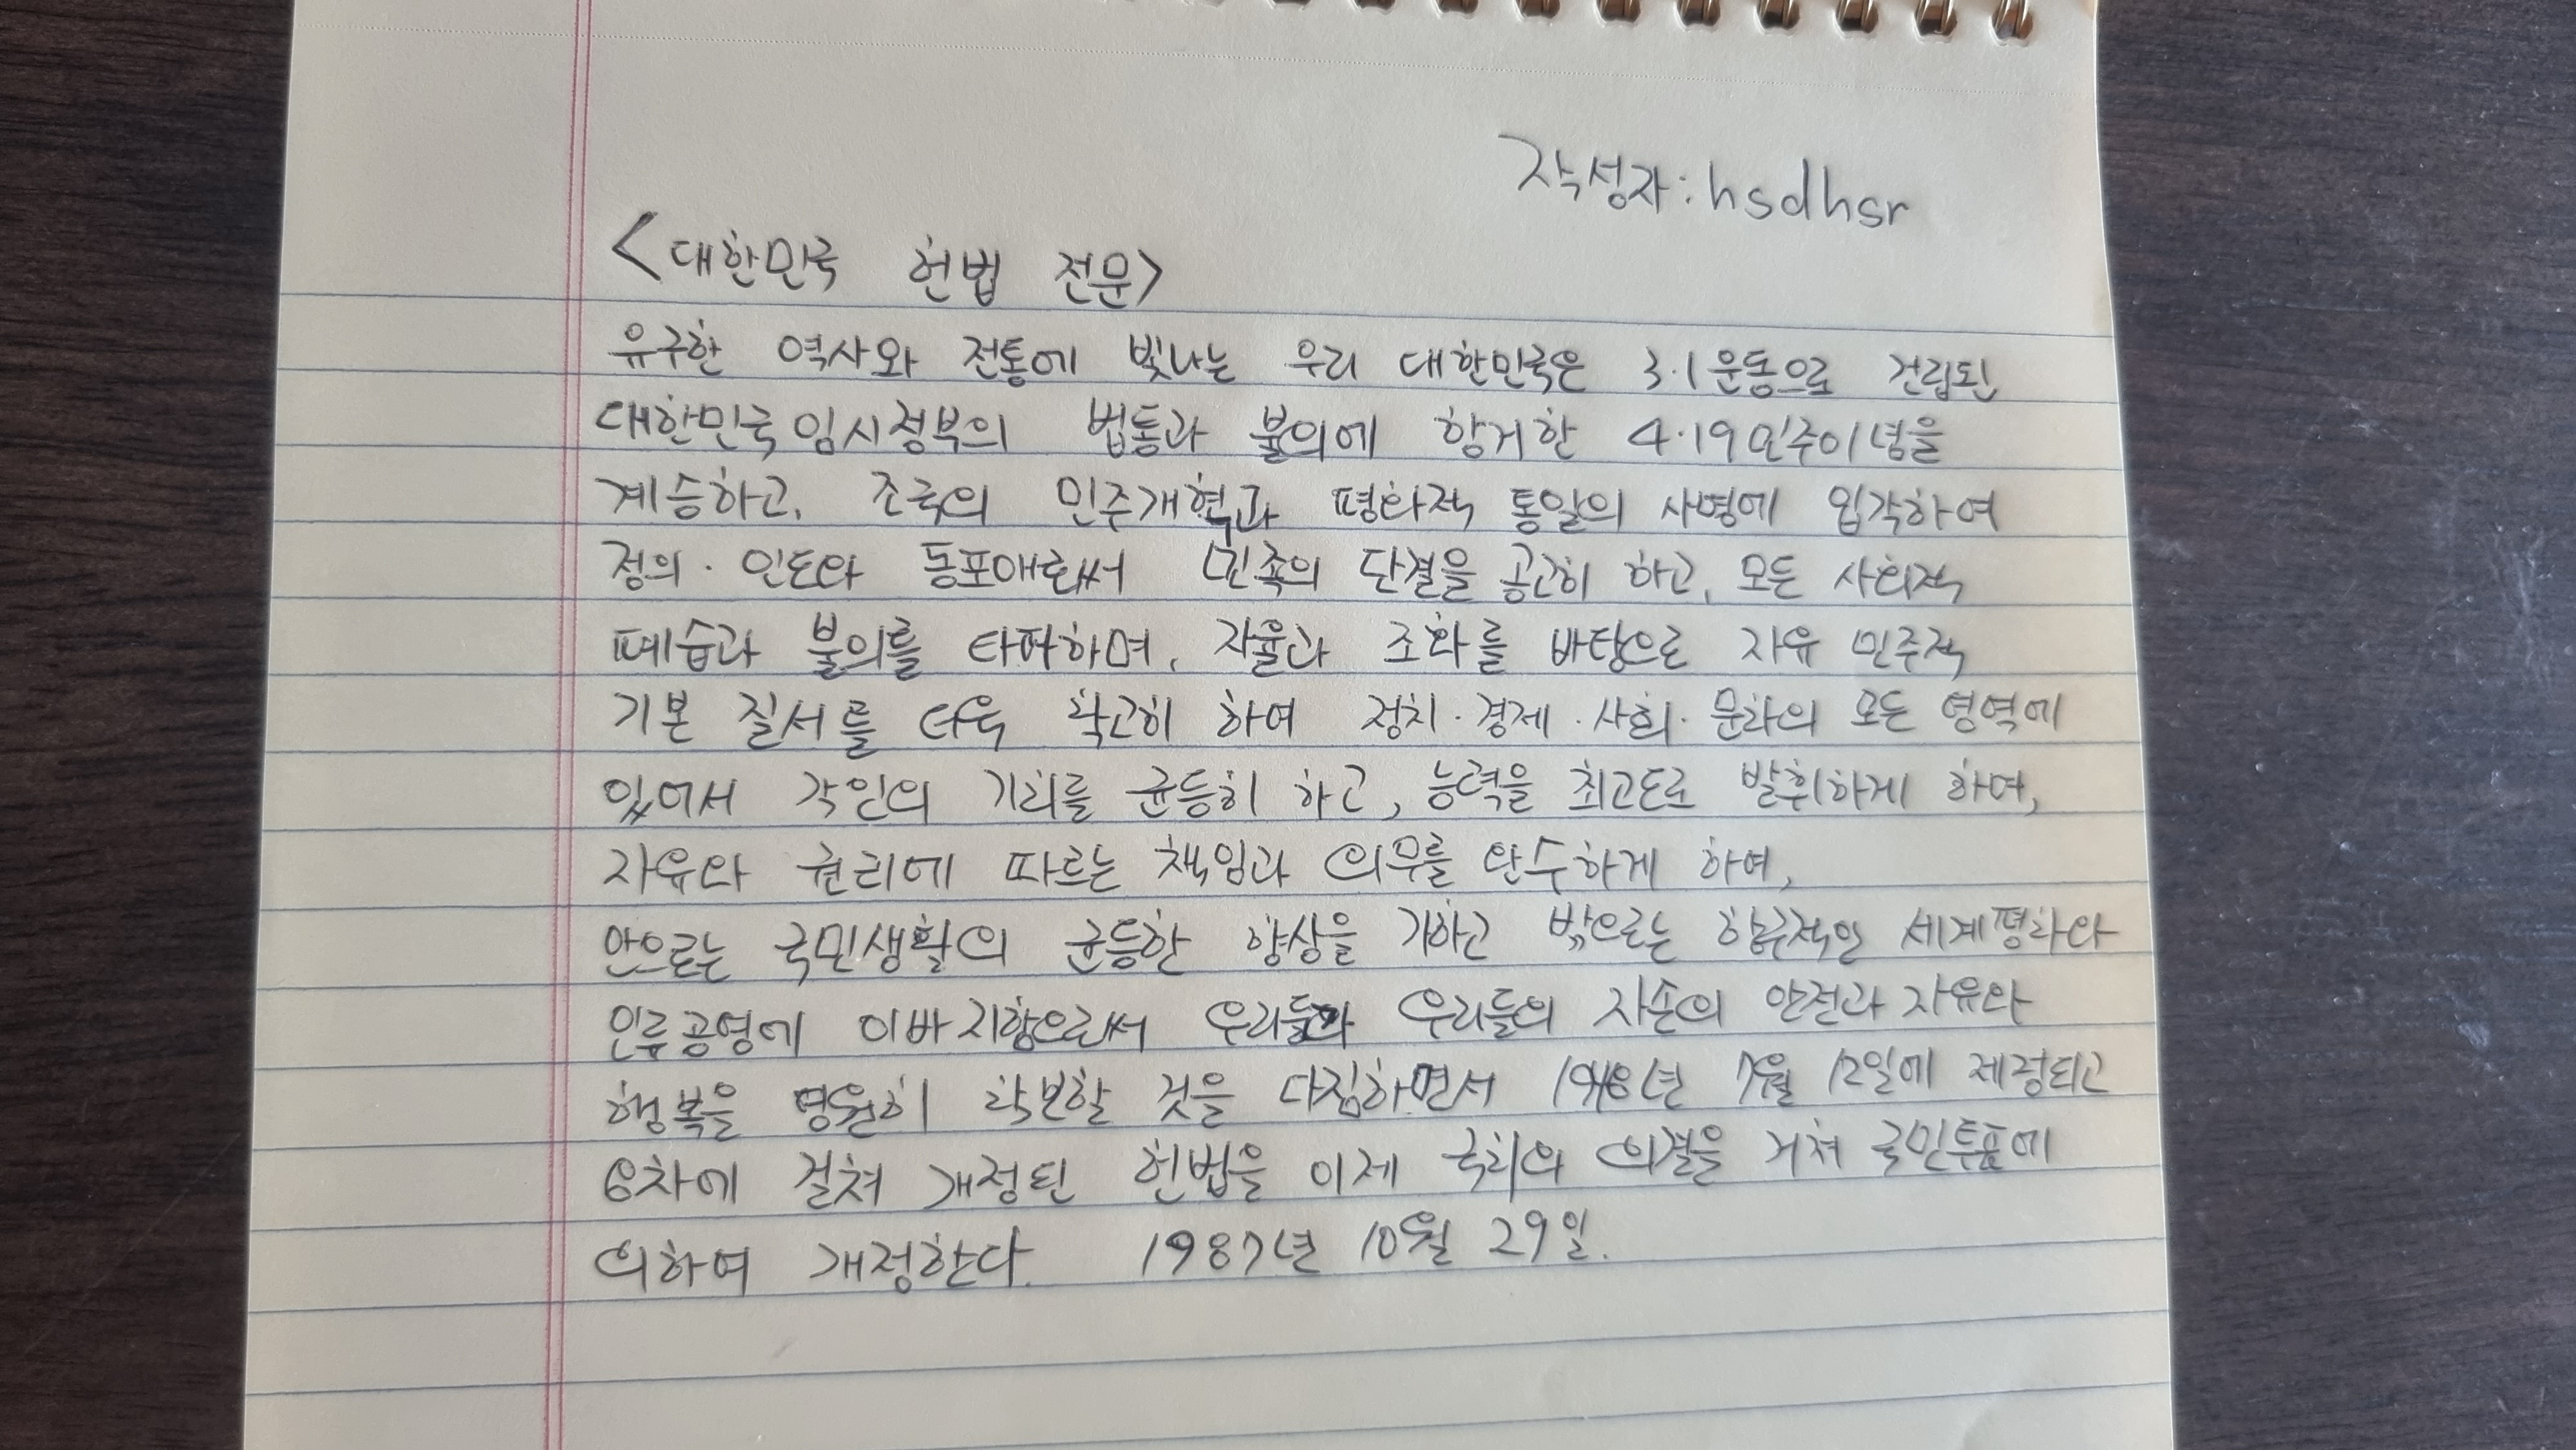 작성자: hsdhsr
<대한민국 헌법 전문>
유구한 역사와 전통에 빛나는 우리 대한민국은 3·1운동으로 건립된
대한민국임시정부의 법통과 불의에 항거한 4·19민주이념을
계승하고, 조국의 민주개혁과 평화적 통일의 사명에 입각하여
정의·인도와 동포애로써 민족의 단결을 공고히 하고, 모든 사회적
폐습과 불의를 타파하며, 자율과 조화를 바탕으로 자유 민주적
기본 질서를 더욱 확고히 하여 정치·경제·사회·문화의 모든 영역에
있어서 각인의 기회를 균등히 하고, 능력을 최고도로 발휘하게 하며,
자유와 권리에 따르는 책임과 의무를 완수하게 하여,
안으로는 국민생활의 균등한 향상을 기하고 밖으로는 항구적인 세계평화와
인류공영에 이바지함으로써 우리들과 우리들의 자손의 안전과 자유와
행복을 영원히 확보할 것을 다짐하면서 1948년 7월 12일에 제정되고
8차에 걸쳐 개정된 헌법을 이제 국회의 의결을 거쳐 국민투표에
의하여 개정한다. 1987년 10월 29일.